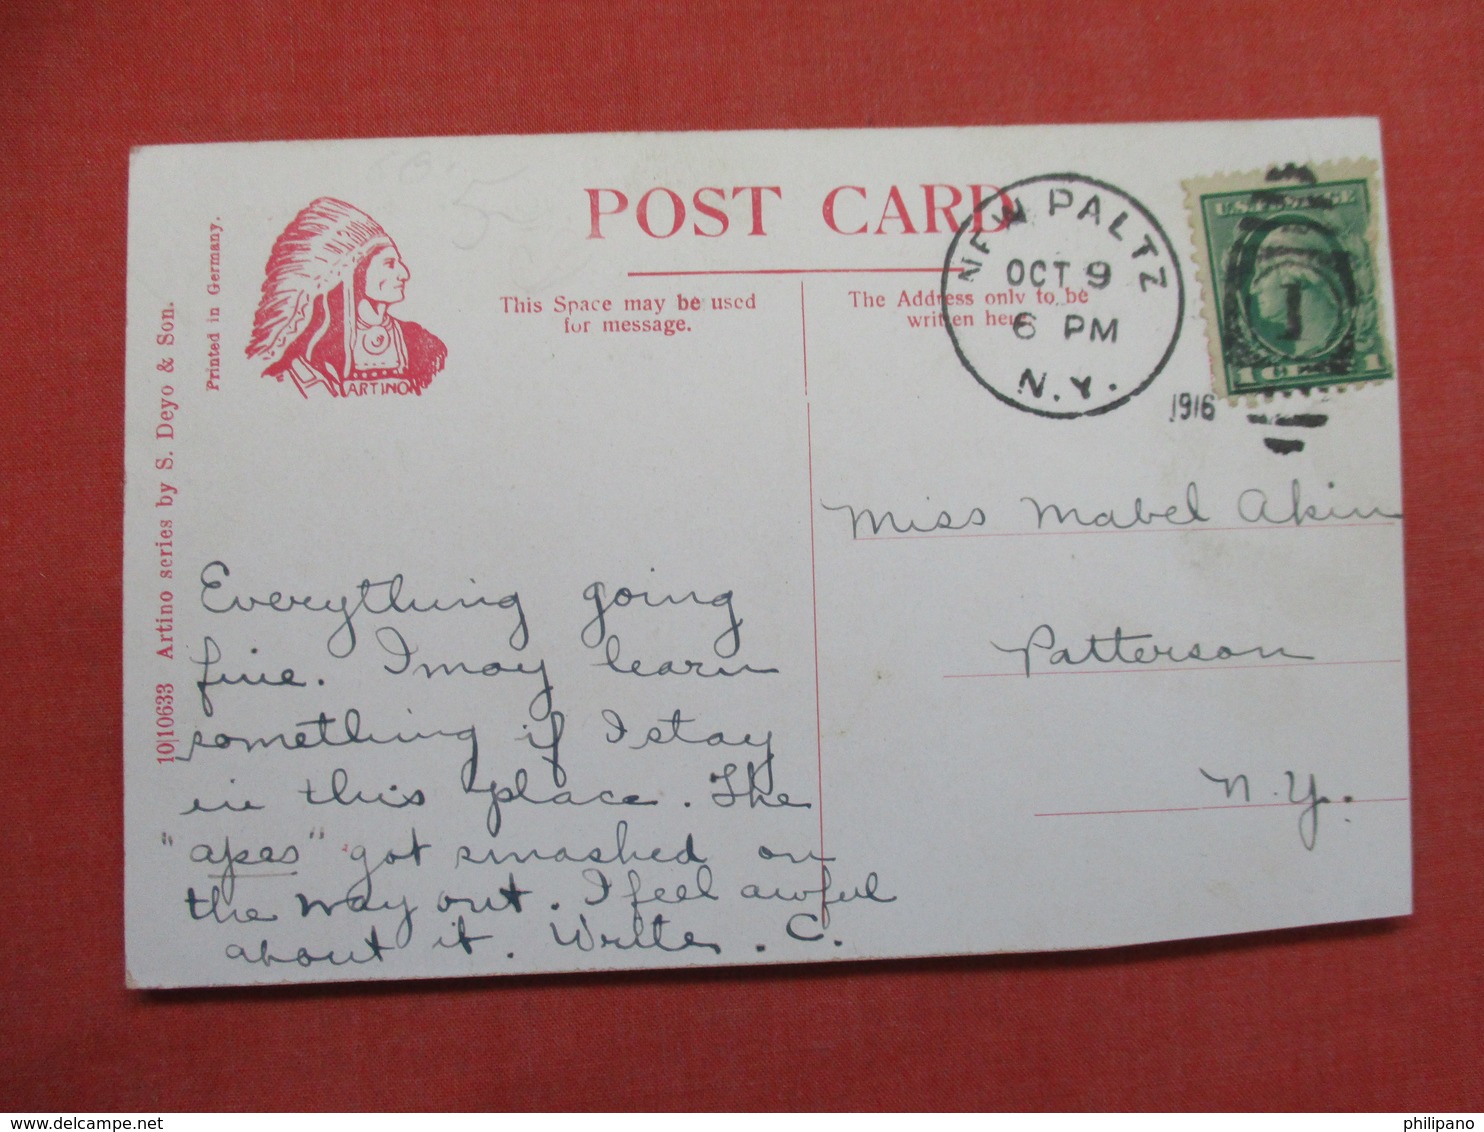 POST CARD
Printed in Germany.
10|10633 Artino series by S. Deyo & Son.
ARTINO
This Space may be used
for message.
The Address only to be
written here.
NEW PALTZ
OCT 9
6 PM
N.Y.
1916
U.S. POSTAGE
1 1
Miss Mabel Akin
Patterson
N.Y.
Everything going
fine. I may learn
something if I stay
in this place. The
"apes" got smashed on
the way out. I feel awful
about it. Write. C.
www.delcampe.net
philipano